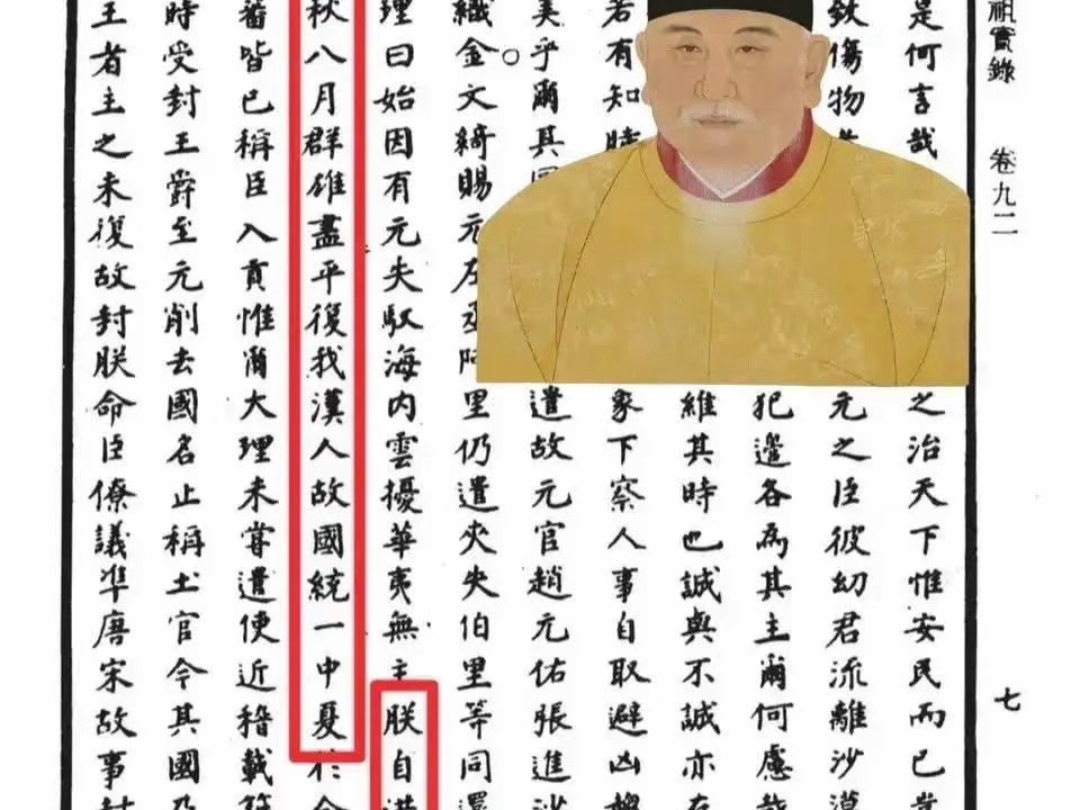 祖實錄 卷九二 七
是何言哉 之治天下惟安民而已
欽傷物 元之臣彼幼君流離沙漠
犯邊各為其主爾何慮哉
維其時也誠與不誠亦在
若有知時 象下察人事自取避凶趨
美乎爾其 遣故元官趙元佑張進沙
織金文綺賜元左丞阿里仍遣夾失伯里等同還
理曰始因有元失馭海內雲擾華夷無主朕自洪
秋八月群雄盡平復我漢人故國統一中夏於今
蕃皆已稱臣入貢惟爾大理未嘗遣使近稽載
時受封王爵至元削去國名止稱土官今其國乃
王者主之未復故封朕命臣僚議準唐宋故事封